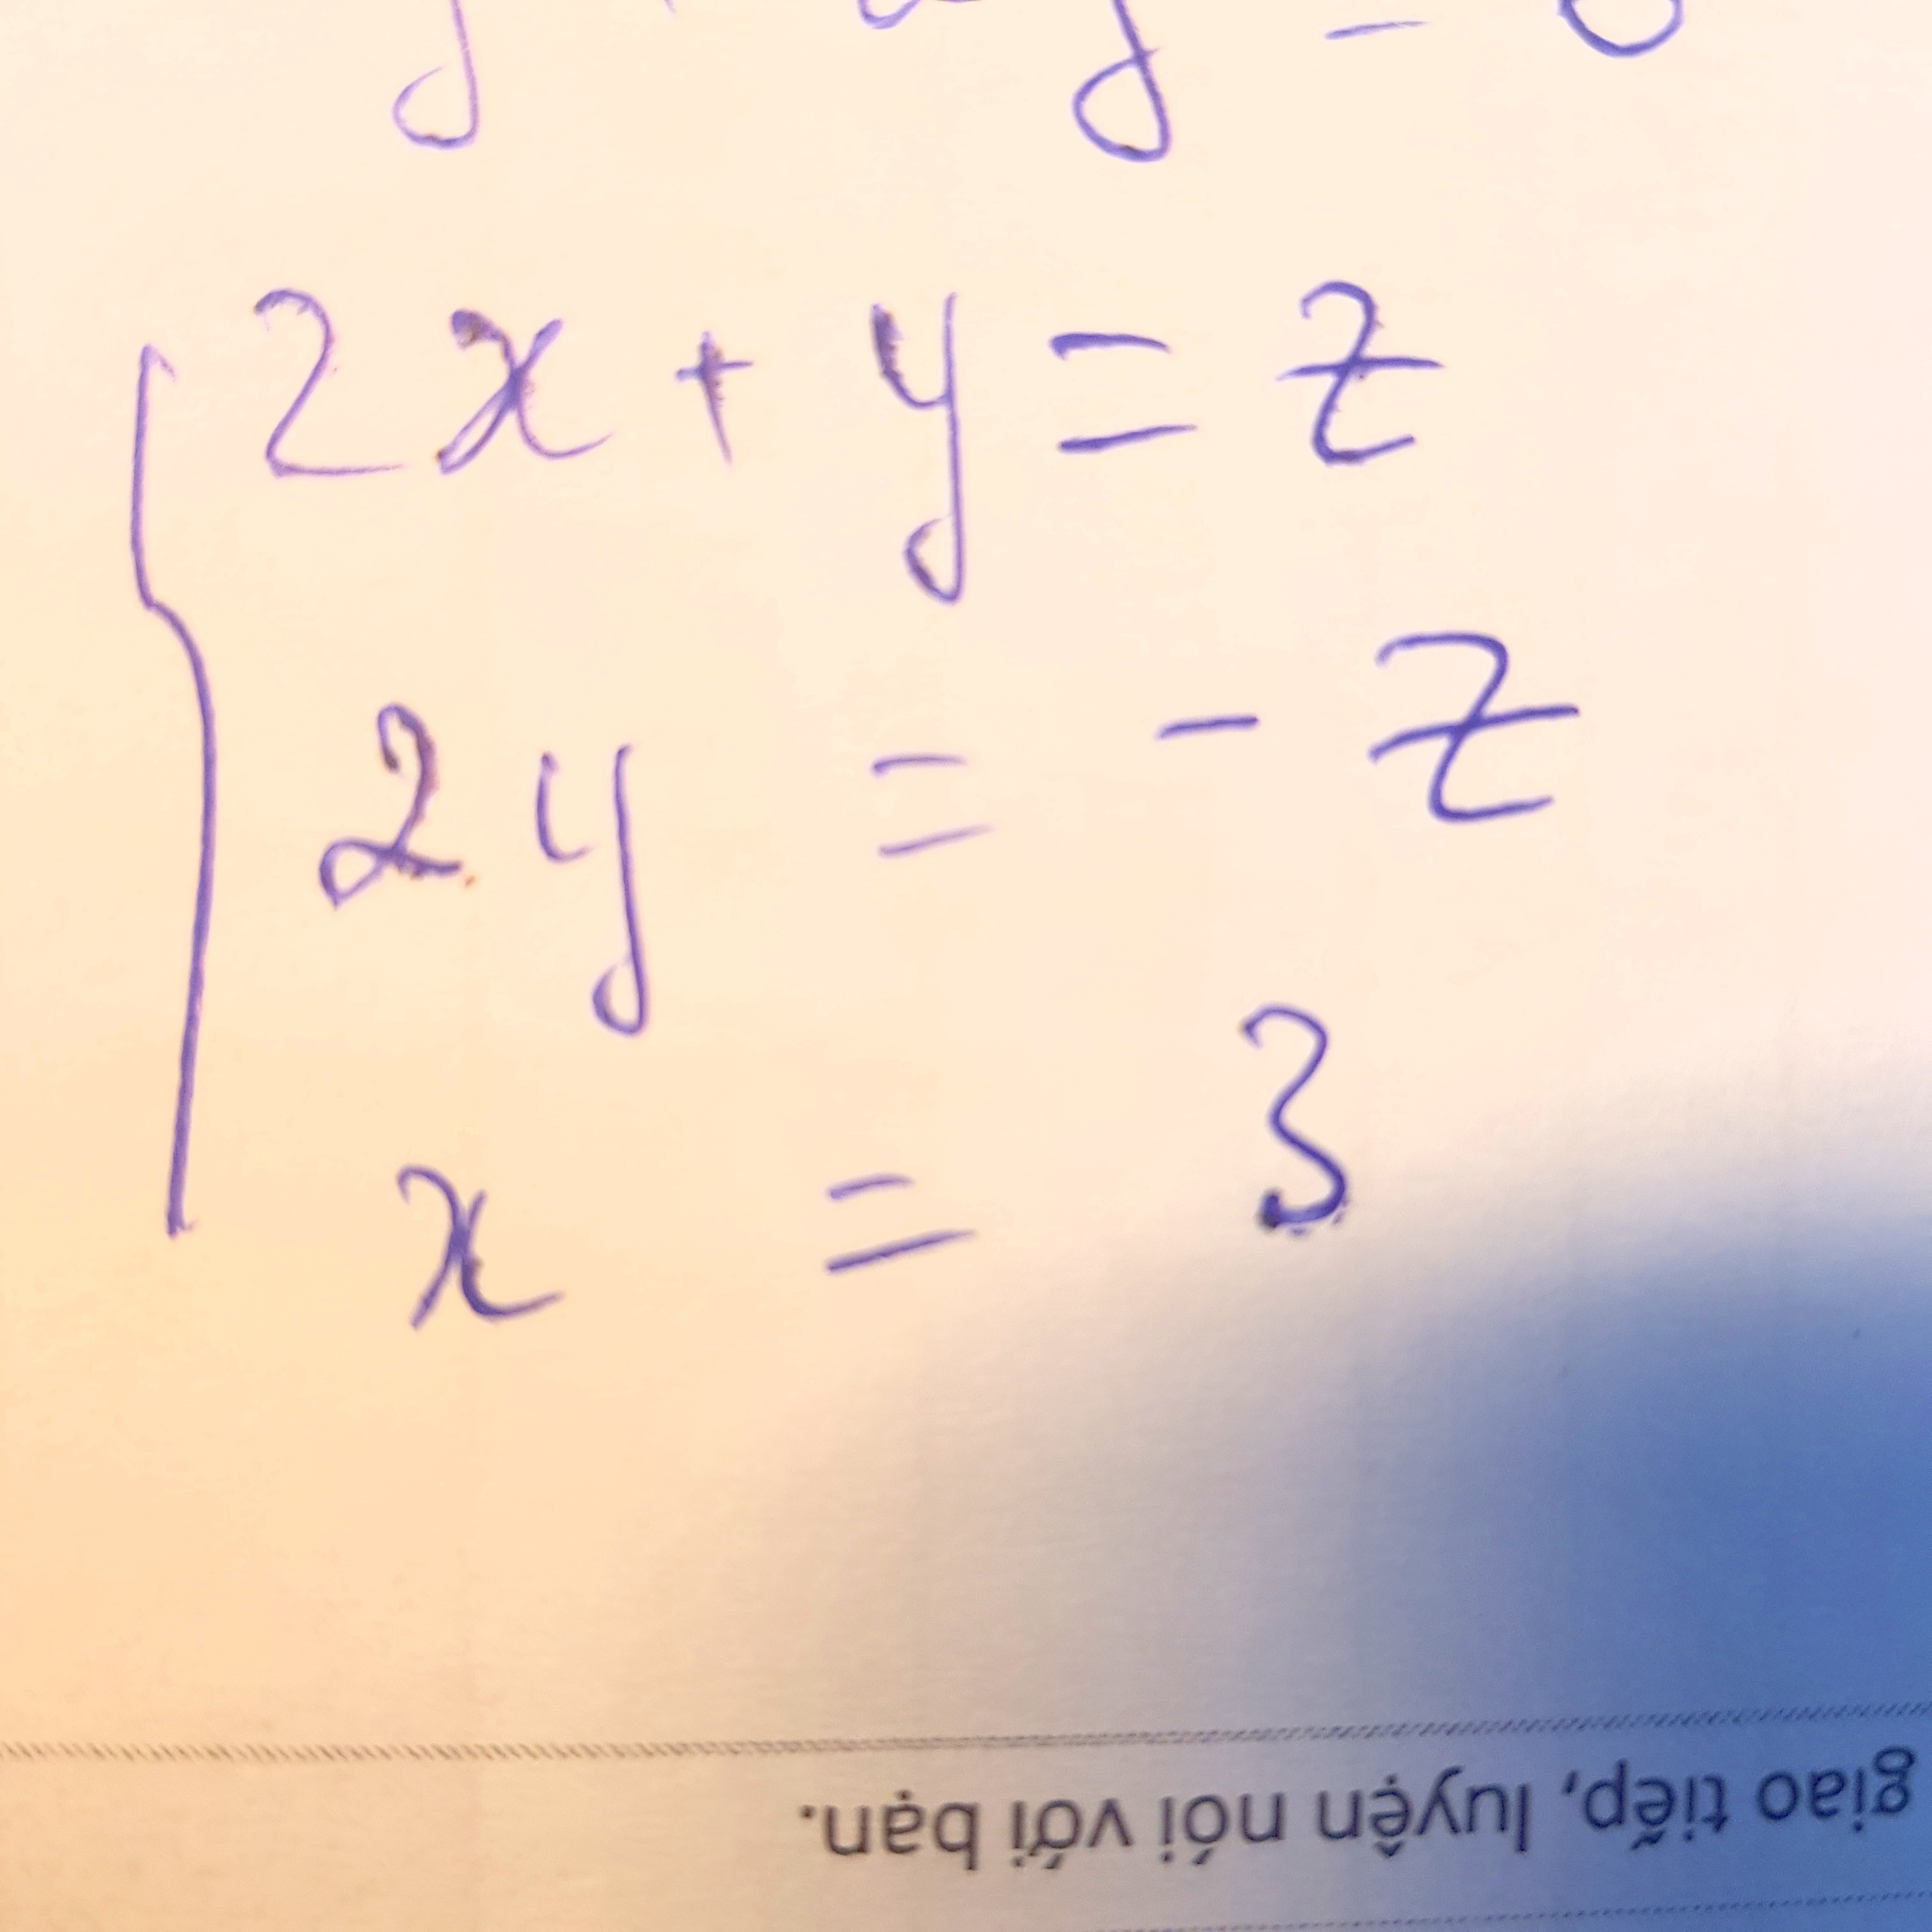 2x + y = z
2y = - z
x = 3
giao tiếp, luyện nói với bạn.